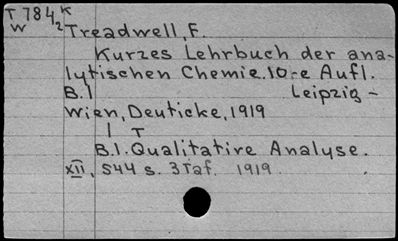 T 784 K
W /2 Treadwell, F.
Kurzes Lehrbuch der ana-
lytischen Chemie. 10-e Aufl.
B. 1 Leipzig-
Wien, Deuticke, 1919
1 T
B. 1. Qualitative Analyse.
XII, 544 s. 3 Taf. 1919.